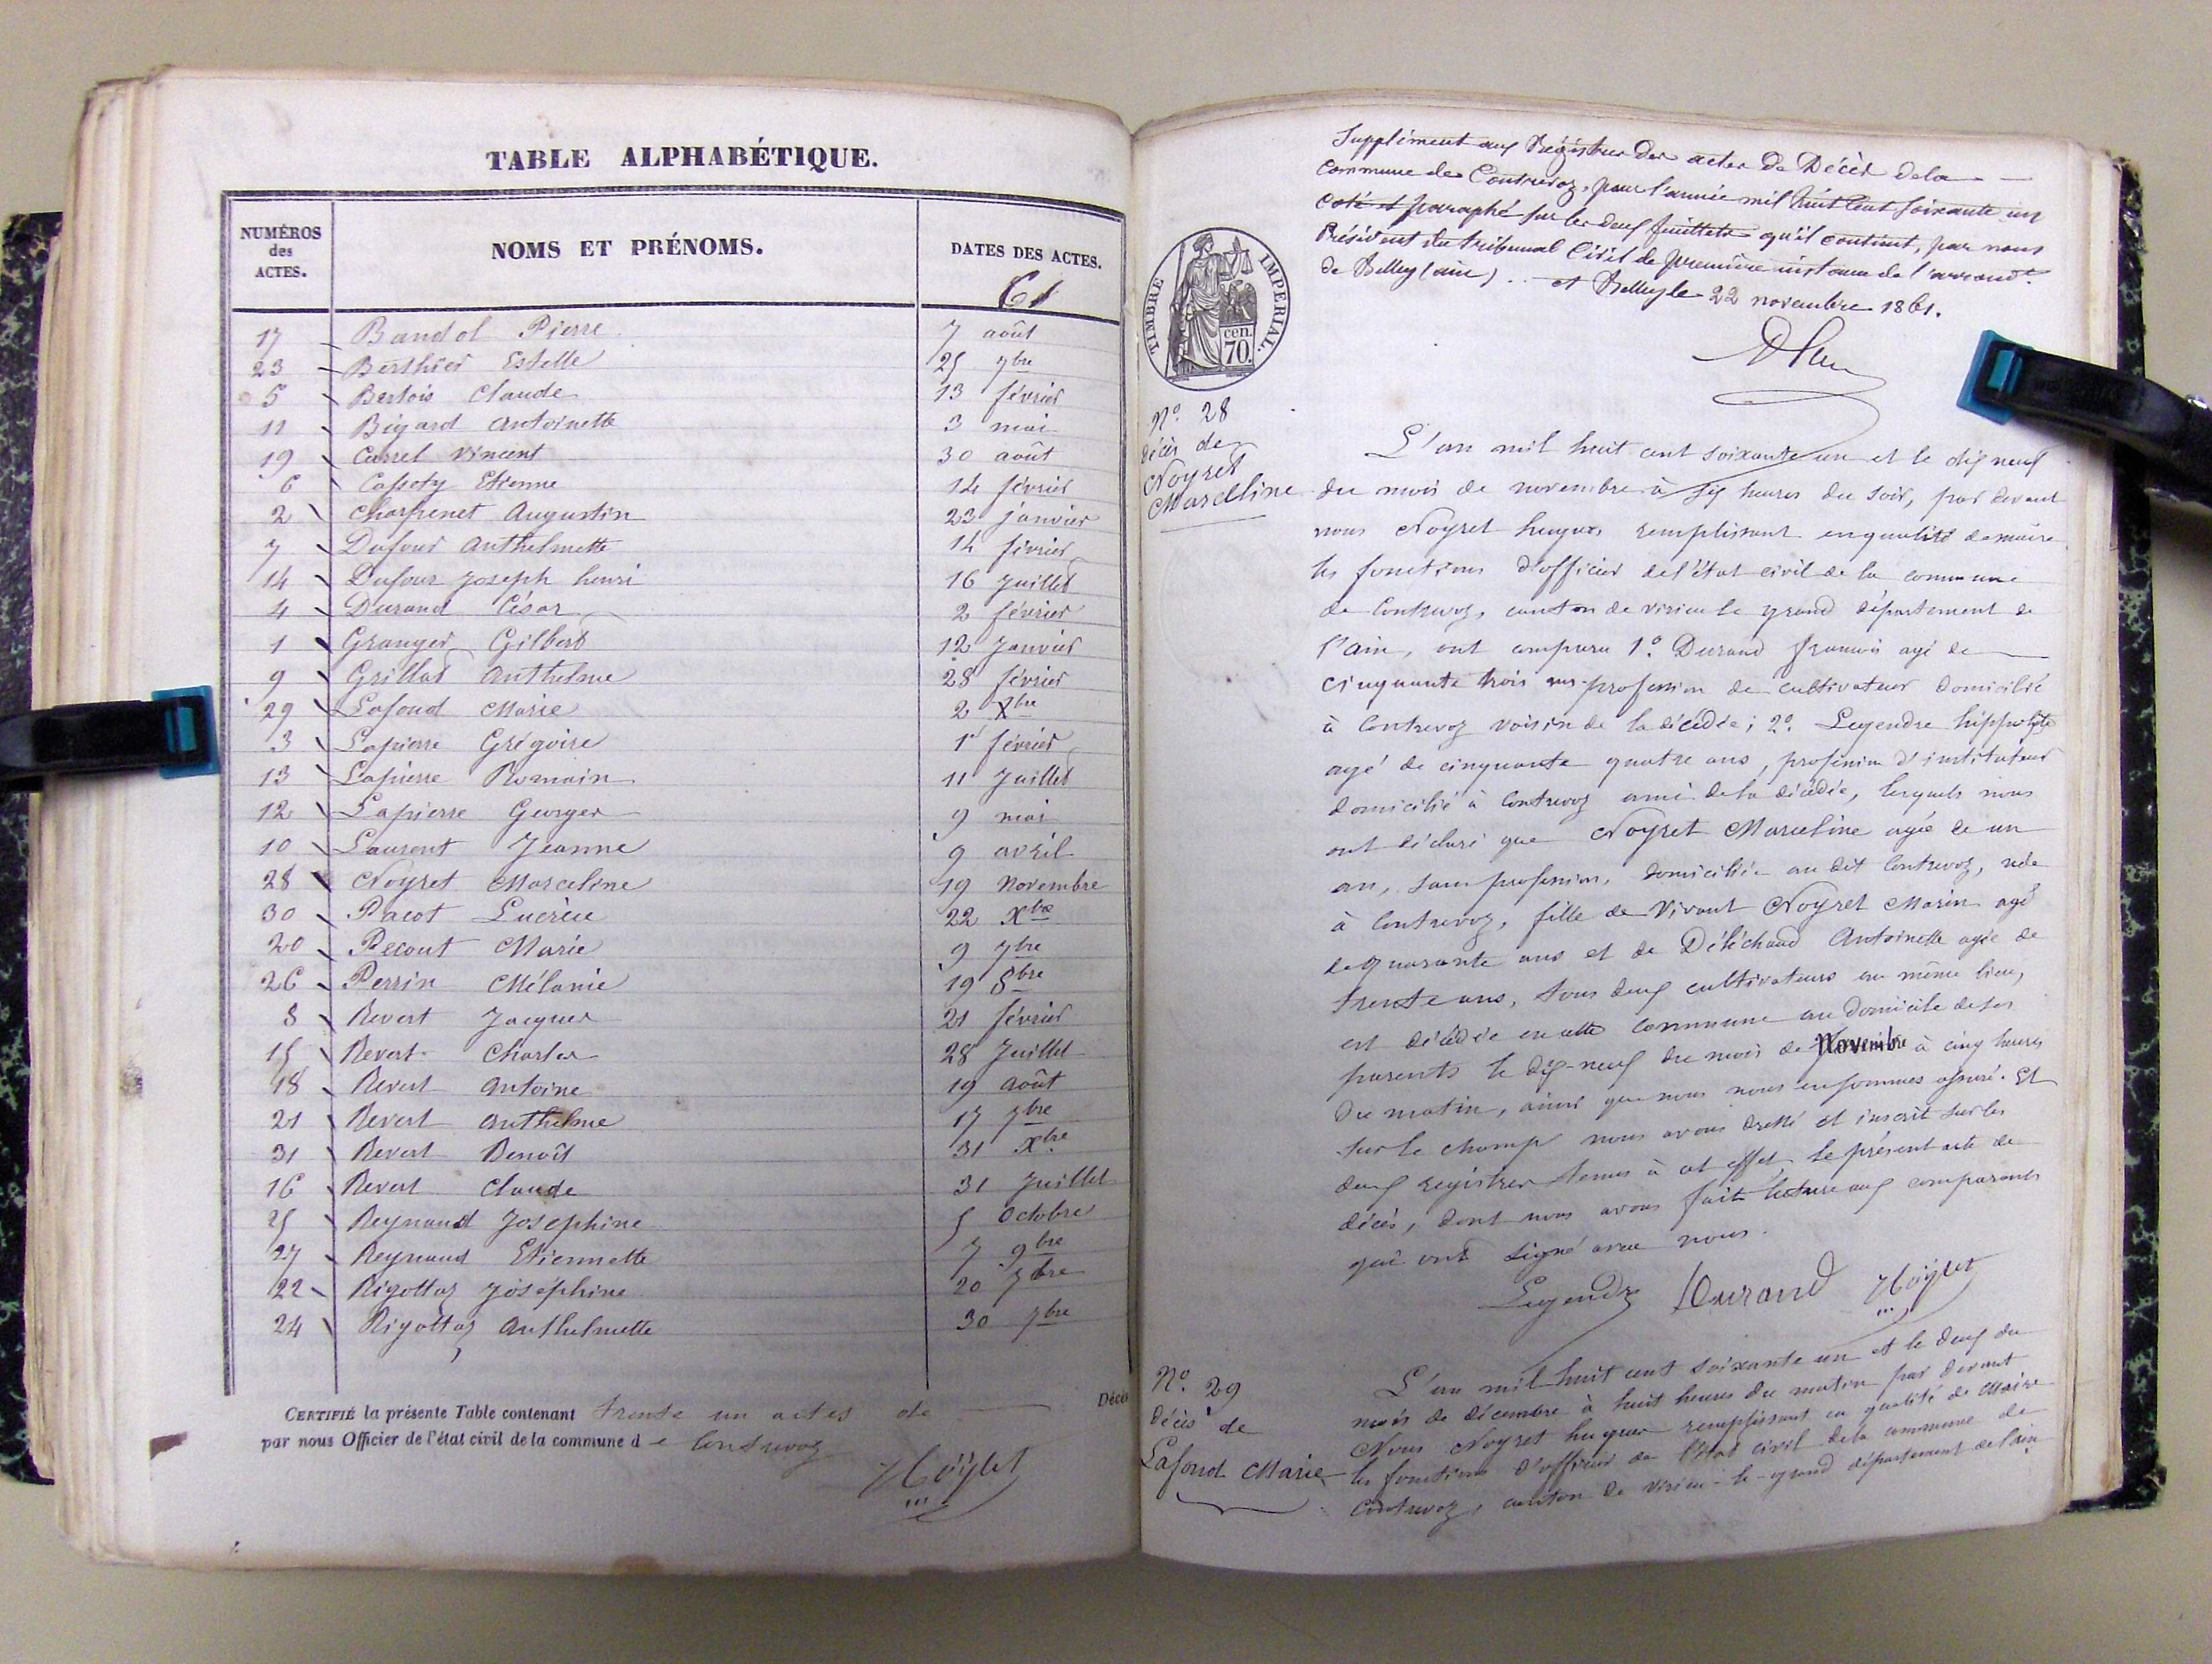 TABLE ALPHABÉTIQUE.
NUMÉROS des ACTES. NOMS ET PRÉNOMS. DATES DES ACTES.
61
17 Bandol Pierre 7 août
23 Berthier Estelle 25 7bre
5 Berlois Claude 13 février
11 Bigard Antoinette 3 mai
19 Carrel Vincent 30 août
6 Etienne 14 février
2 Charpenet Augustin 23 janvier
7 Dufour Anthelmette 14 février
14 Dufour Joseph henri 16 Juillet
4 Durand César 2 février
1 Granger Gilbert 12 Janvier
9 Grillat Anthelme 28 février
29 Lafond Marie 2 Xbre
3 Lapierre Grégoire 1er février
13 Lapierre Romain 11 Juillet
12 Lapierre Georges 9 mai
10 Laurent Jeanne 9 avril
28 Noyret Marceline 19 Novembre
30 Pacot Lucrèce 22 Xbre
20 Pecout Marie 9 7bre
26 Perrin Mélanie 19 8bre
8 Revert Jacques 21 février
15 Revert Charles 28 Juillet
18 Revert Antoine 19 Août
21 Revert Anthelme 17 7bre
31 Revert Benoît 31 Xbre
16 Revert Claude 31 Juillet
25 Reynaud Josephine 5 Octobre
27 Reynaud Etiennette 7 9bre
22 Rigottaz Joséphine 20 7bre
24 Rigottaz Anthelmette 30 7bre
CERTIFIÉ la présente Table contenant trente un actes de Décès
par nous Officier de l'état civil de la commune de Contrevoz
Noyret
Supplément aux Régistres des actes de Décès de la
commune de Contrevoz, pour l'année mil huit cent soixante un
coté et paraphé sur les deux feuillets qu'il contient, par nous
Président du tribunal Civil de première instance de l'arrondt
de Belley (ain) .. et Belley le 22 novembre 1861.
TIMBRE IMPÉRIAL.
cen.
70.
No. 28
décès de
Noyret
Marcelline
L'an mil huit cent soixante un et le dix neuf
du mois de novembre à six heures du soir, par devant
nous Noyret hugues remplissant en qualité de maire
les fonctions d'officier de l'état civil de la commune
de Contrevoz, canton de virieu le grand département de
l'ain, ont comparu 1o. Durand françois agé de
cinquante trois ans profession de cultivateur domicilié
à Contrevoz voisin de la décédée; 2o. Legendre hippolyte
agé de cinquante quatre ans, profession d'instituteur
domicilié à Contrevoz ami de la décédée, lesquels nous
ont déclaré que Noyret Marceline agée de un
an, sans profession, domiciliée au dit Contrevoz, née
à Contrevoz, fille de Vivant Noyret Marin agé
de quarante ans et de Déléchaud Antoinette agée de
trente ans, tous deux cultivateurs au même lieu,
est décédée en cette commune au domicile de ses
parents le dix-neuf du mois de Novembre à cinq heures
du matin, ainsi que nous nous en sommes assuré. Et
sur le champ nous avons dressé et inscrit sur les
deux registres tenus à cet effet, le présent acte de
décès, dont nous avons fait lecture aux comparants
qui ont signé avec nous.
Legendre Durand Noyret
No. 29
Décès de
Lafond Marie
L'an mil huit cent soixante un et le deux du
mois de décembre à huit heures du matin par devant
Nous Noyret hugues remplissant en qualité de Maire
les fonctions d'officier de l'état civil de la commune de
Contrevoz, canton de virieu-le-grand département de l'ain